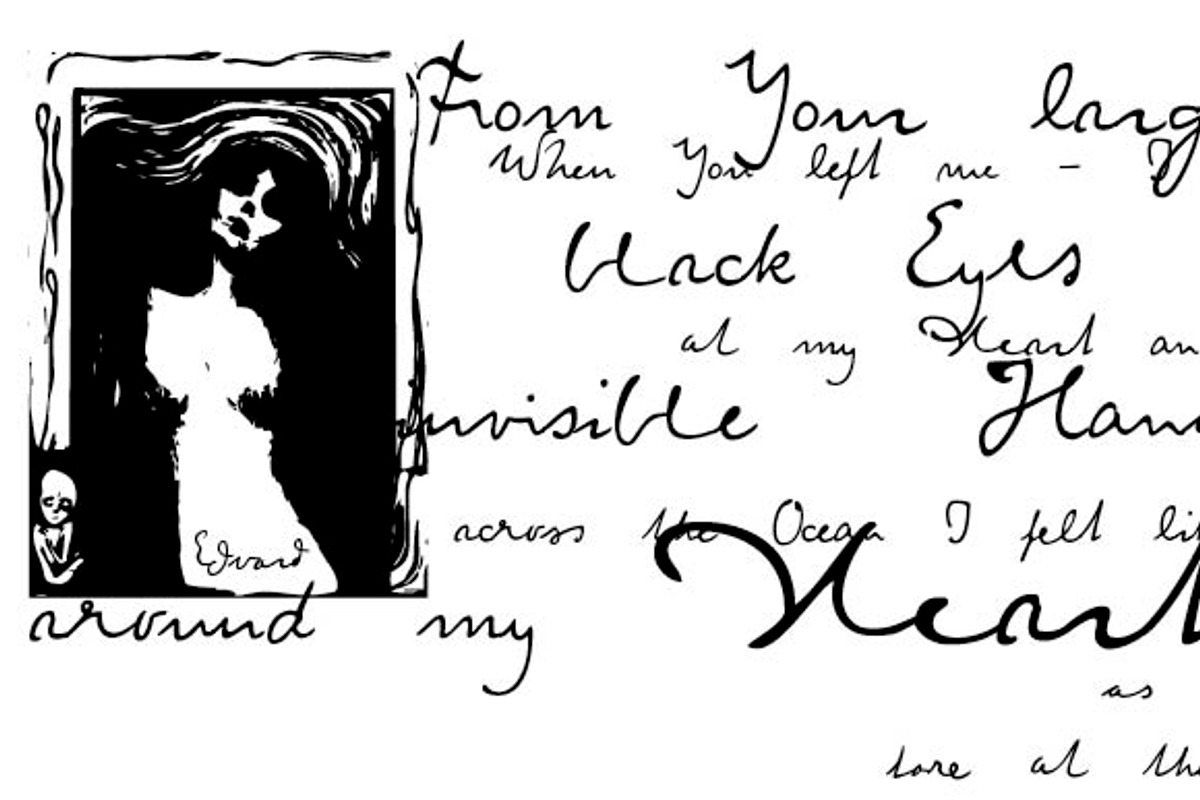 From Your larg
When You left me – I
black Eyes
at my Heart an
invisible Han
across the Ocean I felt li
Edvard
around my Heart
as
tore at the